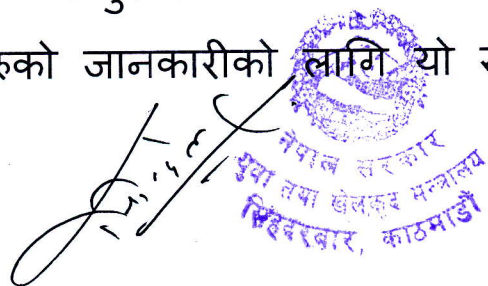 जानकारीको लागि यो
नेपाल सरकार
युवा तथा खेलकुद मन्त्रालय
सिंहदरबार, काठमाडौं